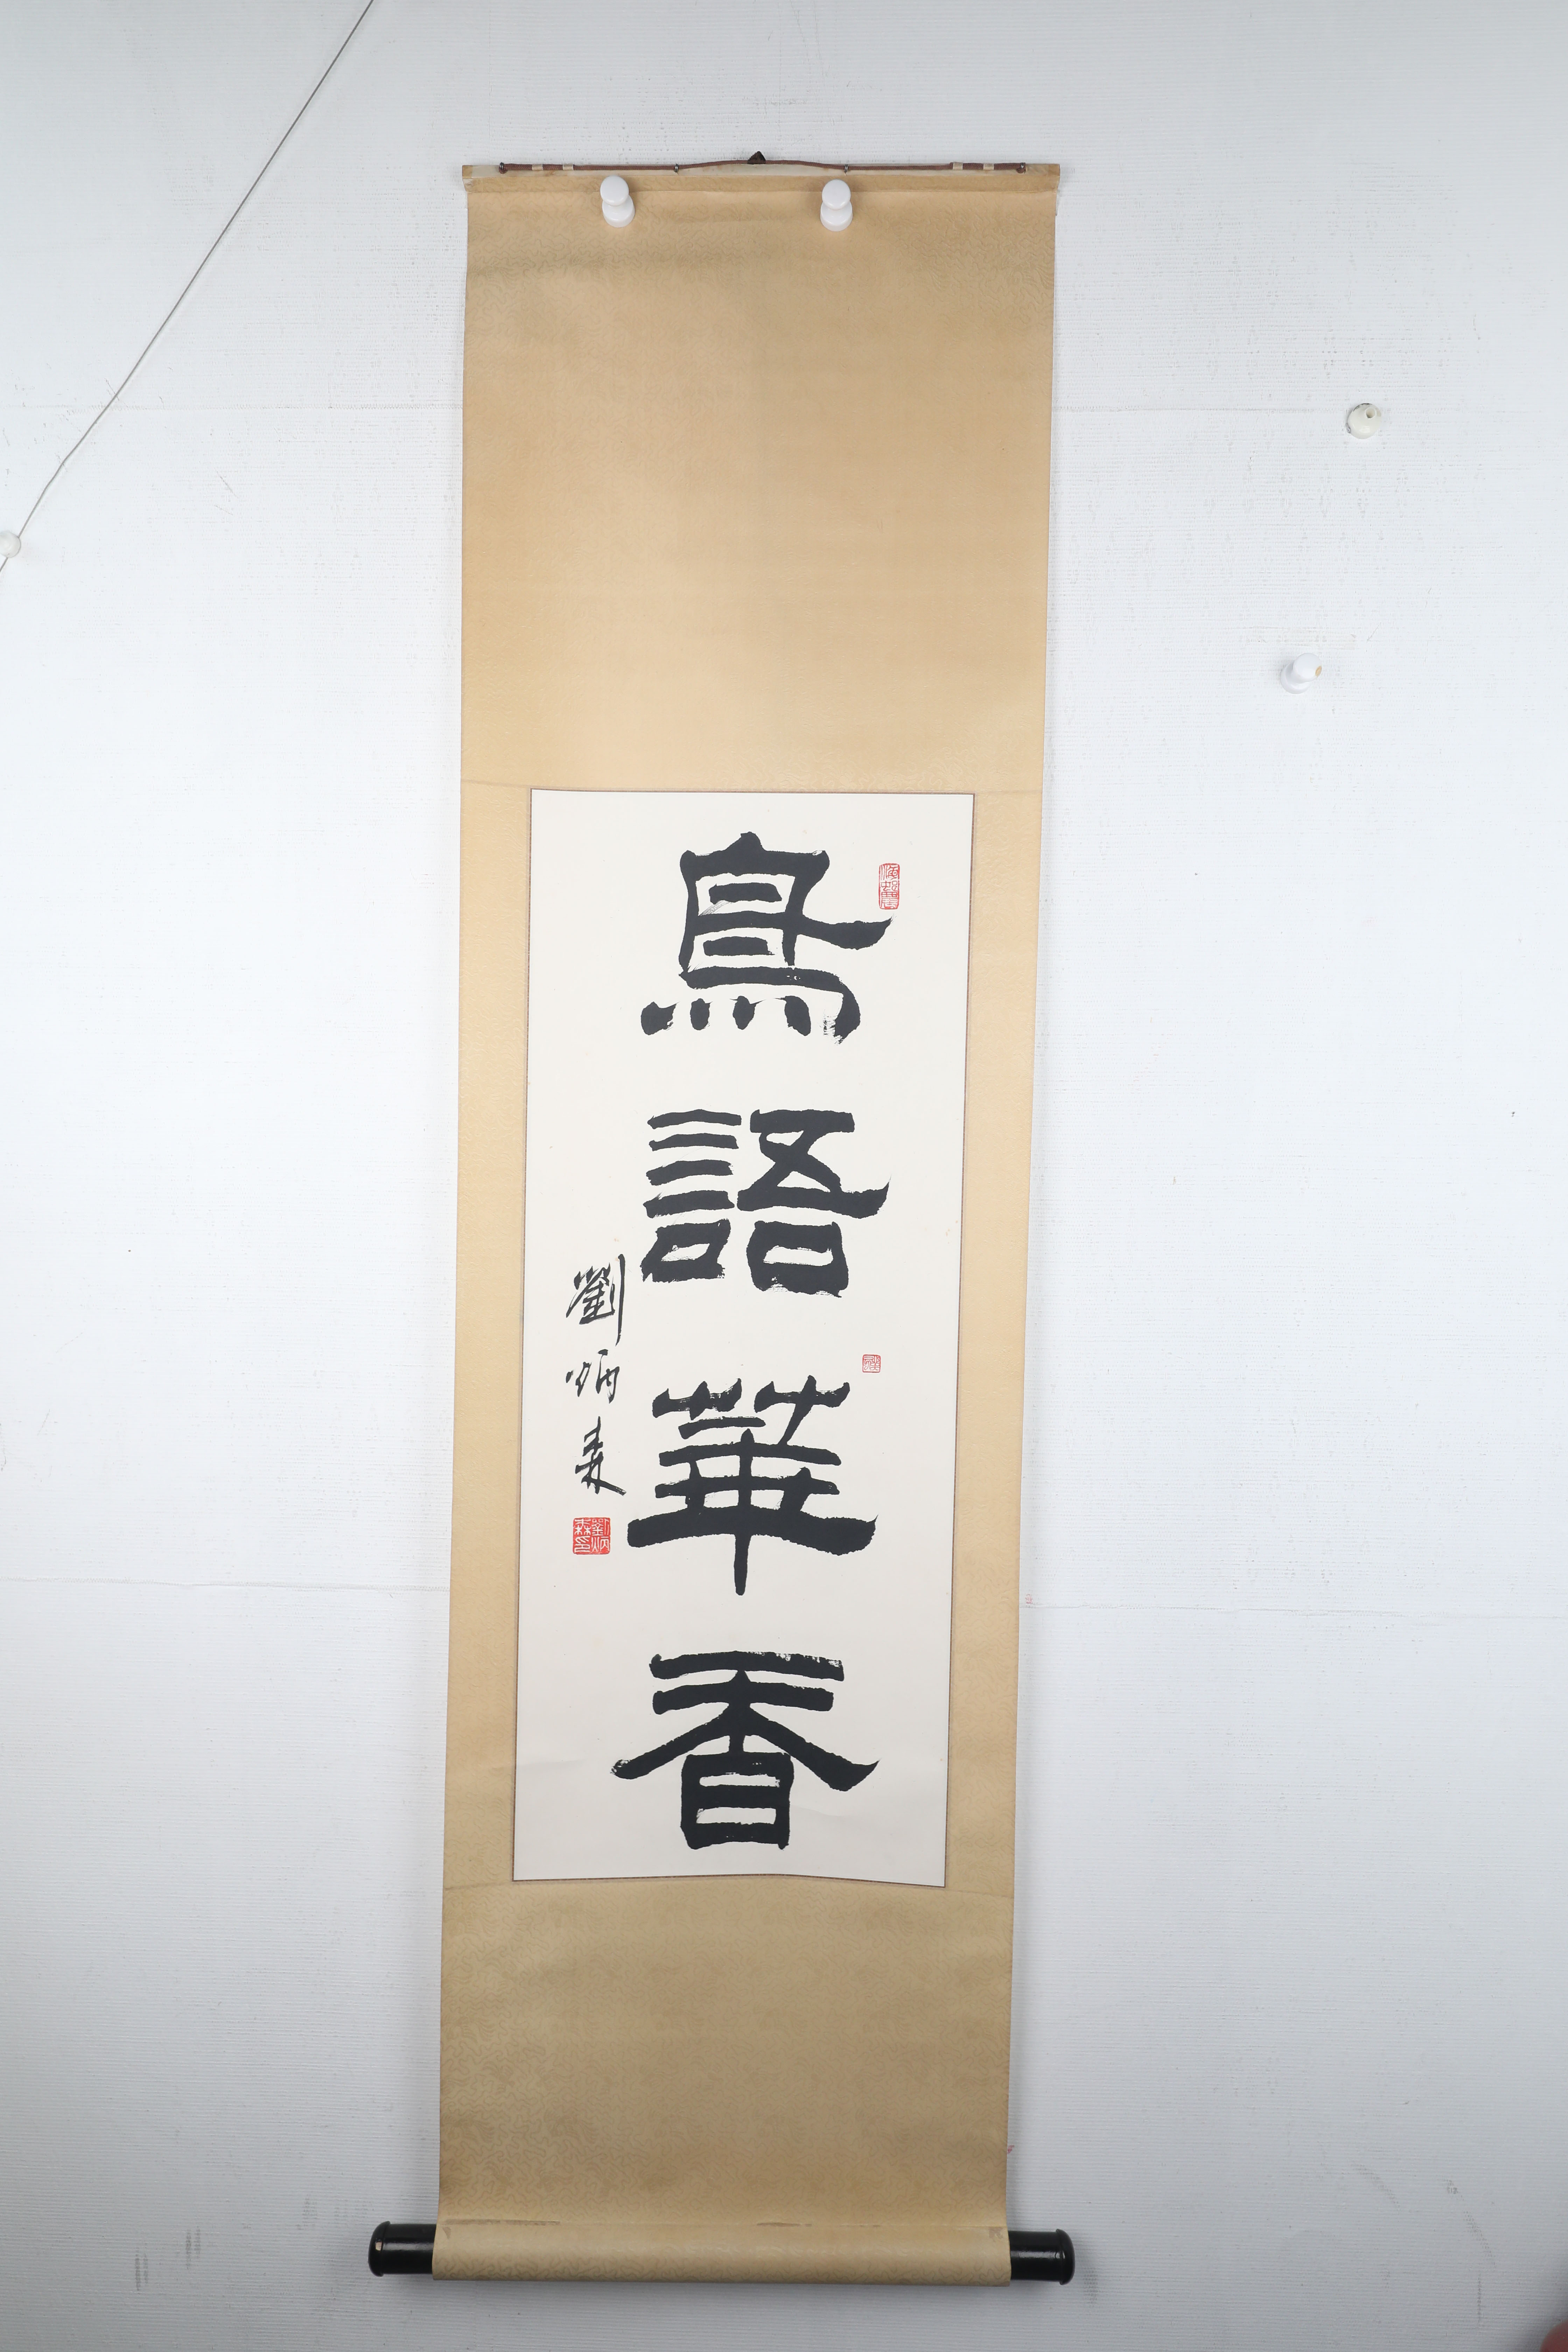 鳥語華香
劉炳森
劉炳森印